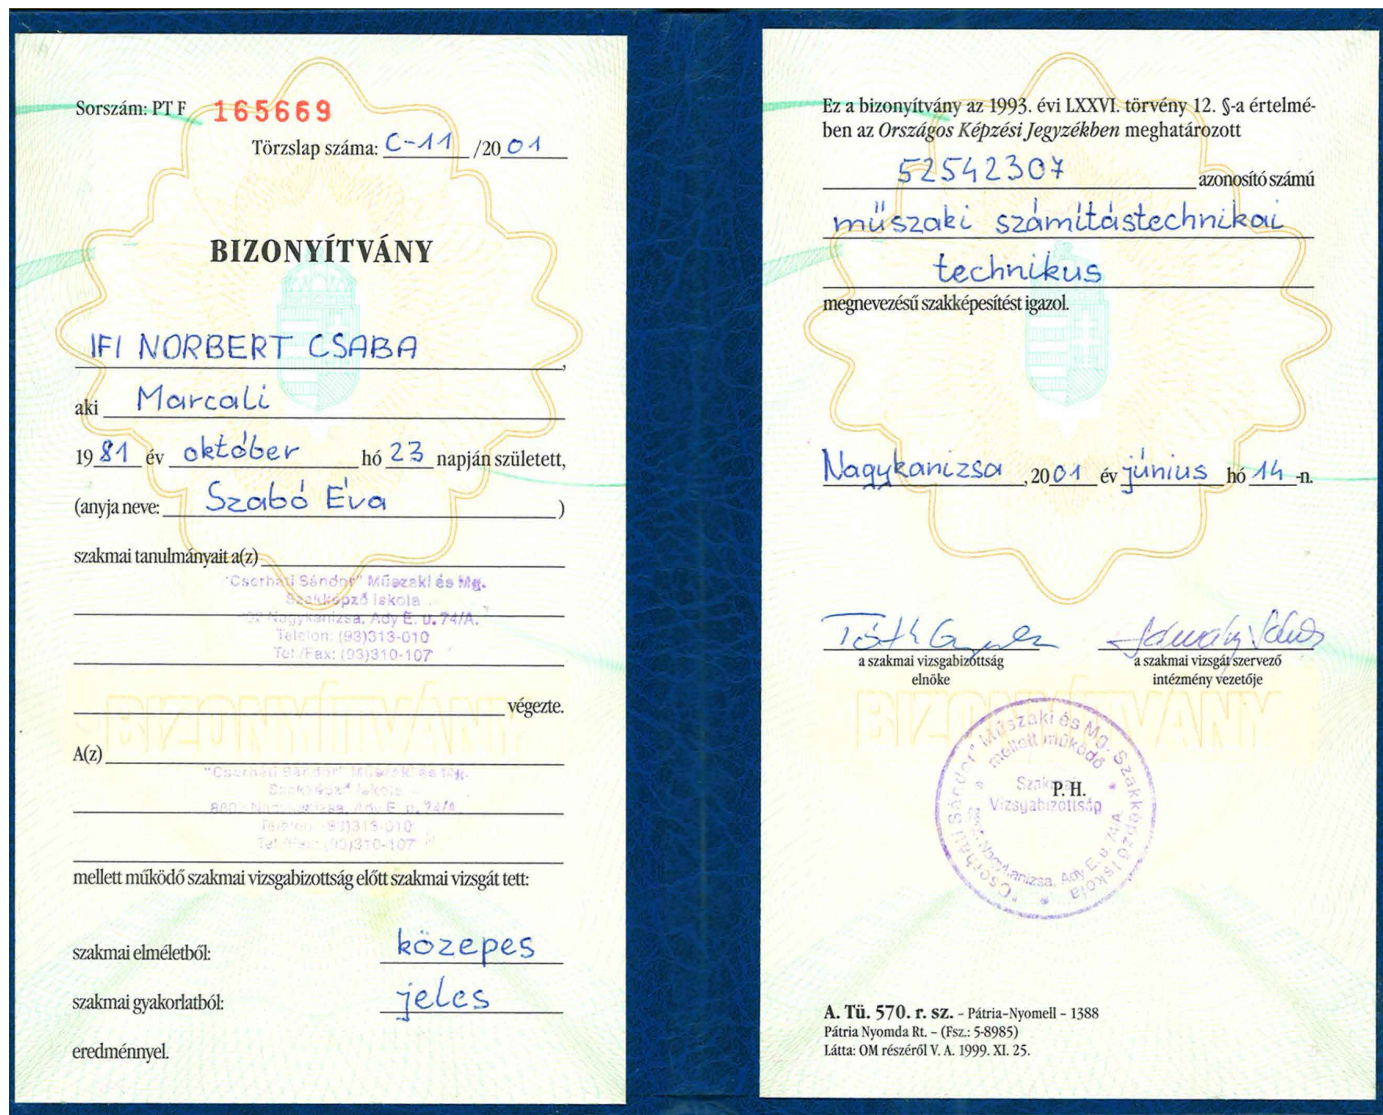 Sorszám: PT F 165669
Törzslap száma: C-11 /2001
BIZONYÍTVÁNY
IFI NORBERT CSABA,
aki Marcali
1981 év október hó 23 napján született,
(anyja neve: Szabó Éva)
szakmai tanulmányait a(z)
"Cserháti Sándor" Műszaki és Mg.
Szakképző Iskola
Nagykanizsa, Ady E. u. 74/A.
Telefon: (93)313-010
Tel/Fax: (93)310-107
végezte.
BIZONYÍTVÁNY
A(z)
"Cserháti Sándor" Műszaki és Mg.
Szakképző Iskola
Nagykanizsa, Ady E. u. 74/A.
Telefon: (93)313-010
Tel/Fax: (93)310-107
mellett működő szakmai vizsgabizottság előtt szakmai vizsgát tett:
szakmai elméletből: közepes
szakmai gyakorlatból: jeles
eredménnyel.
Ez a bizonyítvány az 1993. évi LXXVI. törvény 12. §-a értelmé-
ben az Országos Képzési Jegyzékben meghatározott
52542307 azonosító számú
műszaki számítástechnikai
technikus
megnevezésű szakképesítést igazol.
Nagykanizsa, 2001 év június hó 14-n.
Tóth
a szakmai vizsgabizottság
elnöke
a szakmai vizsgát szervező
intézmény vezetője
BIZONYÍTVÁNY
"Cserháti Sándor" Műszaki és Mg. Szakképző Iskola
mellett működő
Szakmai
Vizsgabizottság
Nagykanizsa, Ady E. u. 74/A
P. H.
A. Tü. 570. r. sz. – Pátria–Nyomell – 1388
Pátria Nyomda Rt. – (Fsz.: 5-8985)
Látta: OM részéről V. A. 1999. XI. 25.